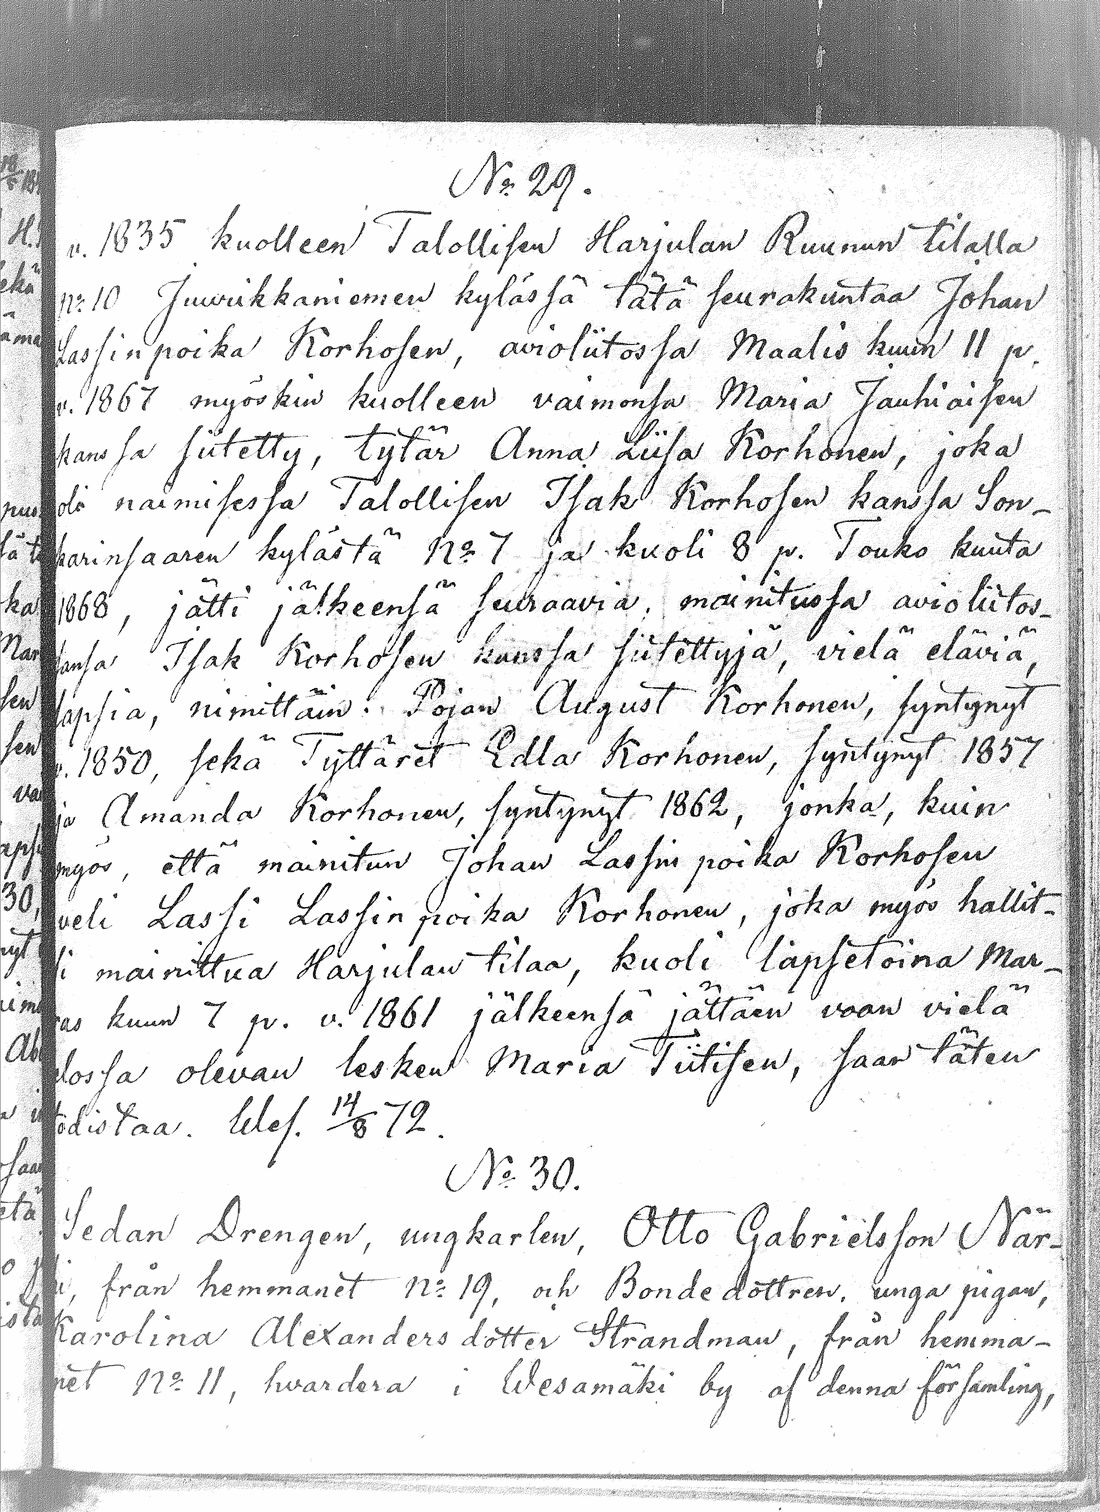 No 29.
v. 1835 kuolleen Talollisen Harjulan Ruunun tilalla
no 10 Juurikkaniemen kylässä tätä seurakuntaa Johan
Lassinpoika Korhosen, avioliitossa Maalis kuun 11 p.
v. 1867 myöskin kuolleen vaimonsa Maria Jauhiaisen
kanssa siitetty, tytär Anna Liisa Korhonen, joka
oli naimisessa Talollisen Isak Korhosen kanssa Son-
karinsaaren kylästä No 7 ja kuoli 8 p. Touko kuuta
1868, jätti jälkeensä seuraavia, mainitussa avioliitos-
sansa Isak Korhosen kanssa siitettyjä, vielä eläviä,
lapsia, nimittäin: Pojan August Korhonen, syntynyt
v. 1850, sekä Tyttäret Edla Korhonen, syntynyt 1857
ja Amanda Korhonen, syntynyt 1862, jonka, kuin
myös, että mainitun Johan Lassin poika Korhosen
veli Lassi Lassin poika Korhonen, joka myös hallit-
si mainittua Harjulan tilaa, kuoli lapsetoina Mar-
ras kuun 7 p. v. 1861 jälkeensä jättäen vaan vielä
elossa olevan lesken Maria Tiitisen, saan täten
todistaa. Wes. 14/8 72.
No 30.
Sedan Drengen, ungkarlen, Otto Gabrielsson När-
hi, från hemmanet no 19, och Bondedottren, unga pigan,
Karolina Alexanders dotter Strandman, från hemma-
net No 11, hvardera i Wesamäki by af denna församling,